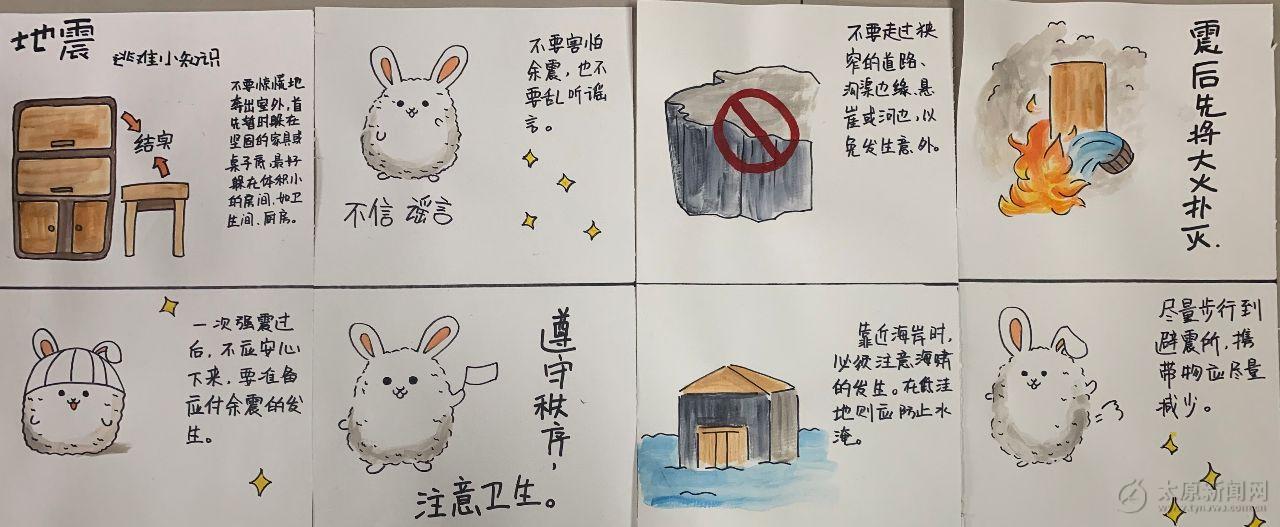 地震
逃难小知识
结实
不要惊慌地
奔出室外,首
先暂时躲在
坚固的家具或
桌子底,最好
躲在体积小
的房间,如卫
生间、厨房。
不要害怕
余震,也不
要乱听谣
言。
不信 谣言
不要走过狭
窄的道路、
沟渠边缘、悬
崖或河边,以
免发生意外。
震后先将大火扑灭.
一次强震过
后,不应安心
下来,要准备
应付余震的发
生。
遵守秩序,
注意卫生。
靠近海岸时,
必须注意海啸
的发生。在低洼
地则应防止水
淹。
尽量步行到
避震所,携
带物应尽量
减少。
太原新闻网
www.tynews.com.cn